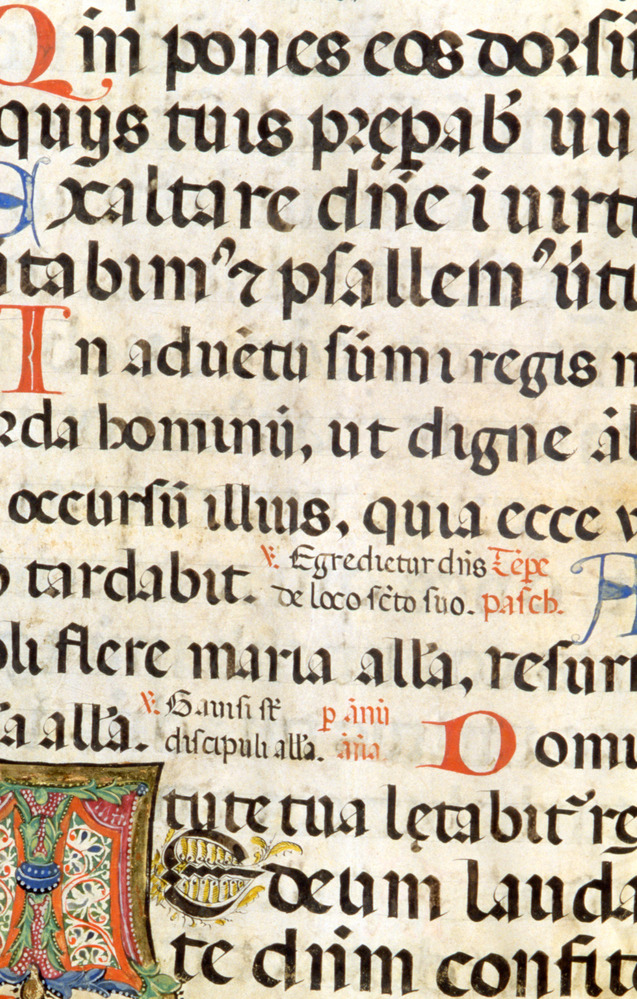 Qm pones eos dorsū
quijs tuis pręparab̄ uu
Exaltare dn̄e ī uirt
ntabim⁹ ⁊ psallem⁹ ūtu
In aduētu sūmi regis
rda hominū, ut digne āb
occursū illius, quia ecce v
tardabit. ℣. Egredietur dn̄s Tēpe
de loco sc̄to suo. pasch.
oli flere maria all'a, resurr
a all'a. ℣. Gauisi st̄ p ānū
discipuli all'a. āīa Domi
tute tua lętabit᷑ re
deum lauda
te dn̄m confit